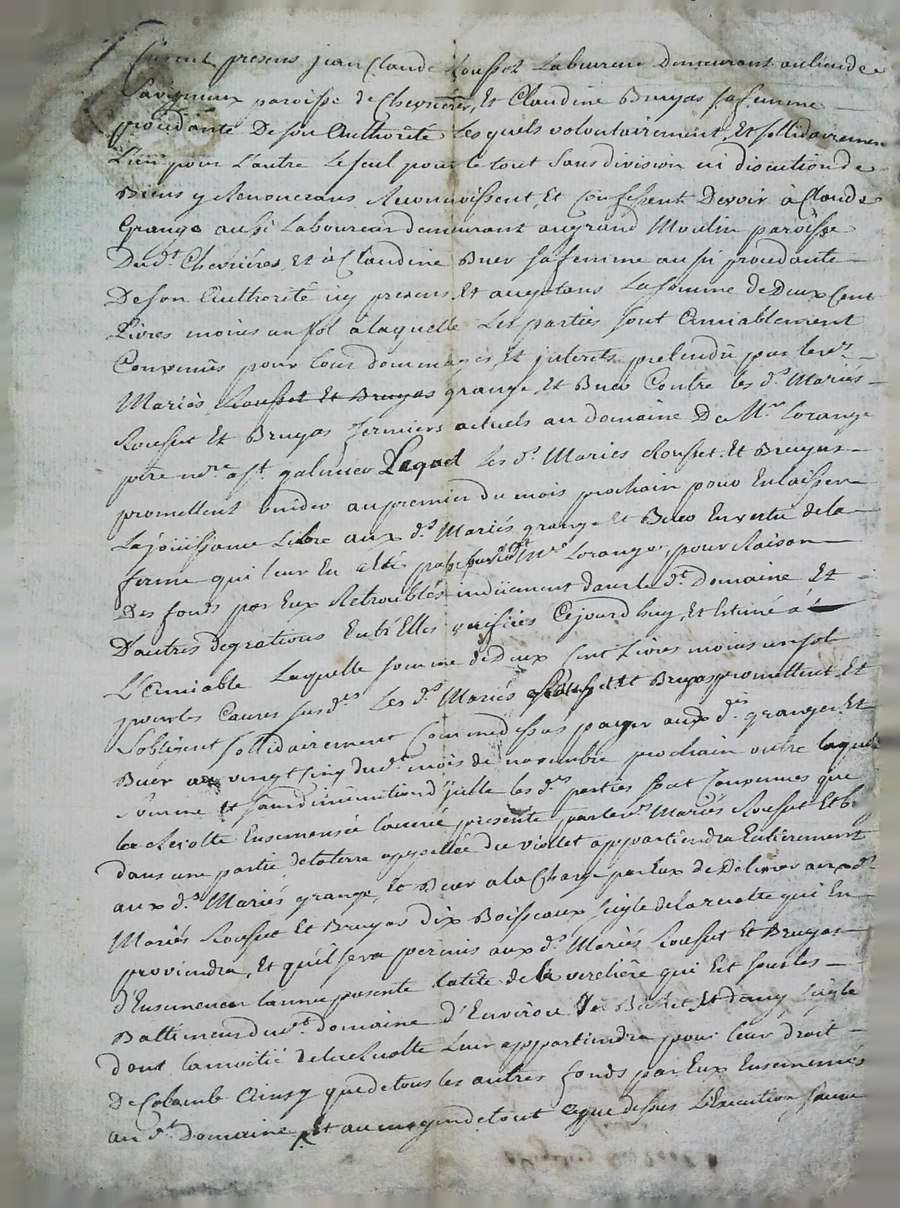 furent presens jean Claude Rousset Laboureur Demeurant au lieu de
Savigneux paroisse de Chevrieres, Et Claudine Bruyas sa femme
procédante De son Authorité Lesquels volontairement, Et sollidairemen
L'un pour L'autre Le seul pour le tout sans division ni discution de
Biens y Renoncans Reconnoissent, Et Confessent Devoir à Claude
Grange aussi Laboureur demeurant au grand Moulin paroisse
Du dt. Chevriéres Et à Claudine Buer sa femme aussi procdante
De son Authorité icy presens Et acceptans La somme de Deux Cent
Livres moins un sol à laquelle Les parties sont Amiablement
Convenuës pour tous dommages Et interets pretendu par les
Mariés Rousset Et Bruyas grange, Et Buer Contre les ds. Mariés
Rousset Et Bruyas fermiers actuels au domaine De Mr. Lorange
père nre. à st. galmier Lequel Les ds. Mariés Rousset Et Bruyas
promettent vuider au premier du mois prochain pour En laisser
La joüissance Libre aux ds. Mariés grange Et Buer En vertu de la
ferme qui leur En a été passé par Mr. Lorange, pour Raison
Des fonds par Eux Retroublés induëment dans le dt. Domaine Et
D'autres degrations Entr'Elles verifiées Cejourd'huy, Et Estimé à
L'Amiable Laquelle somme de Deux Cent Livres moins un sol
pour les Causes susdes. Les ds. Mariés Rousset Et Bruyas promettent Et
S'obligent sollidairement Comme dessus payer aux ds. grange Et
Buer au vingt Cinq du mois de novembre prochain outre laquelle
Somme Et sans diminution d'ycelle les des. parties sont Convenues que
la Recolte Ensemensée L'année presente par les ds. Mariés Rousset Et B.
dans une partie de la terre appellée du viollet appartiendra Entierement
aux ds. Mariés grange, Et Buer a la Charge par Eux de Delivrer aux ds.
Mariés Rousset Et Bruyas Dix Boisseaux seigle de la recolte qui En
proviendra, Et qu'il sera permis aux ds. Mariés Rousset Et Bruyas
d'Ensemencer L'année presente la tête de la verchère qui Est sous les
Battimens du dt. domaine d'Environ Et demy seigle
dont la moitié de la Recolte Leur appartiendra pour leur droit
De Colombe Ainsy que de tous les autres fonds par Eux Ensemensés
au dt. Domaine, Et au moyen de tout ce que dessus L'Execution